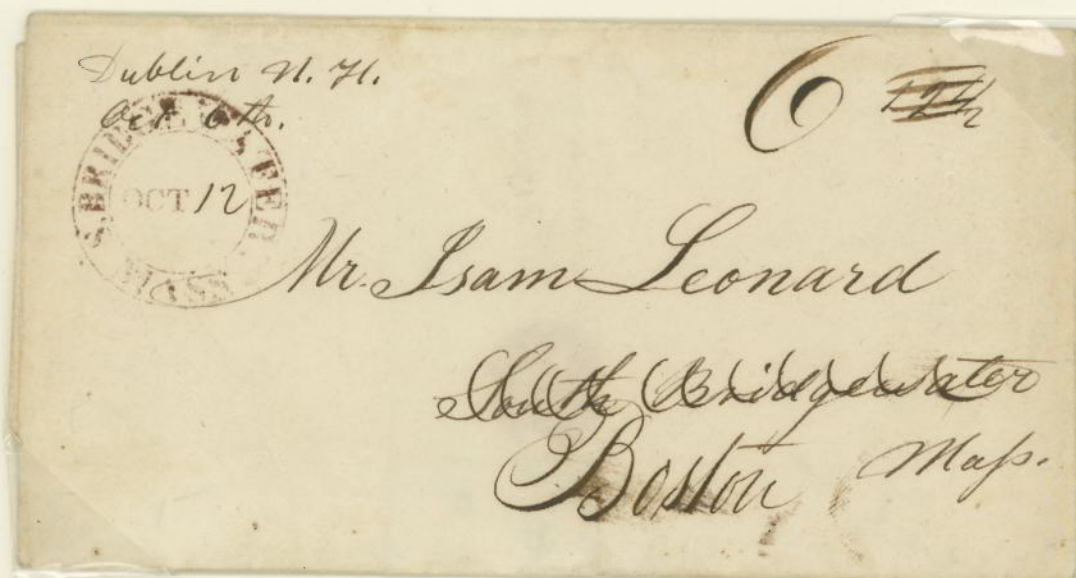 Dublin N. H.
Oct 6th.
6 12½
S. BRIDGEWATER MASS
OCT 12
Mr. Isam Leonard
South Bridgewater
Boston Mass.